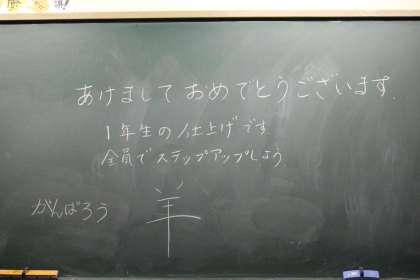 あけましておめでとうございます.
1年生の仕上げです.
全員でステップアップしよう.
がんばろう
羊